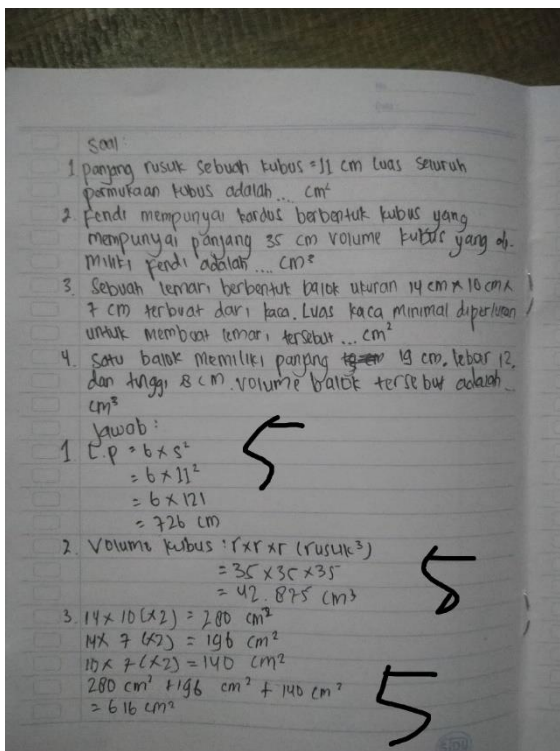 Soal:
1 panjang rusuk sebuah kubus = 11 cm luas seluruh
permukaan kubus adalah .... cm²
2. Fendi mempunyai kardus berbentuk kubus yang
mempunyai panjang 35 cm volume kubus yang di-
miliki fendi adalah .... cm³
3. Sebuah lemari berbentuk balok ukuran 14 cm x 10 cm x
7 cm terbuat dari kaca. Luas kaca minimal diperlukan
untuk membuat lemari tersebut ... cm²
4. Satu balok memiliki panjang 19 cm. lebar 12,
dan tinggi 8 cm. volume balok tersebut adalah...
cm³
Jawab:
1 L.p = 6 x s²
= 6 x 11²
= 6 x 121
= 726 cm
5
2. Volume kubus : r x r x r (rusuk³)
= 35 x 35 x 35
= 42.875 cm³
5
3. 14 x 10 (x2) = 280 cm²
14 x 7 (x2) = 196 cm²
10 x 7 (x2) = 140 cm²
280 cm² + 196 cm² + 140 cm²
= 616 cm²
5